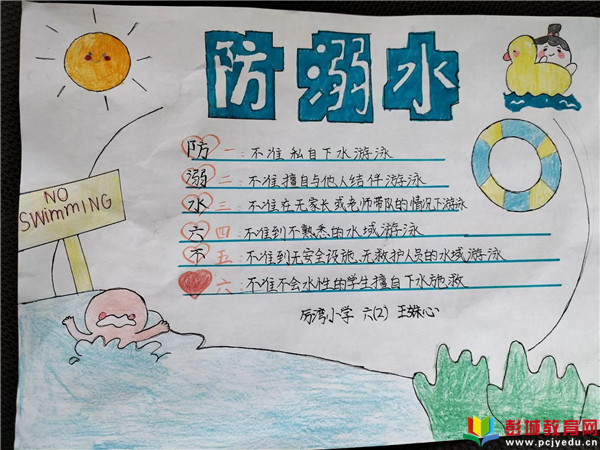 防溺水
NO
SWimmiNG
防 一：不准私自下水游泳
溺 二：不准擅自与他人结伴游泳
水 三：不准在无家长或老师带队的情况下游泳
六 四：不准到不熟悉的水域游泳
不 五：不准到无安全设施、无救护人员的水域游泳
六：不准不会水性的学生擅自下水施救
厉湾小学 六(2) 王姝心
彭城教育网
www.pcjyedu.cn